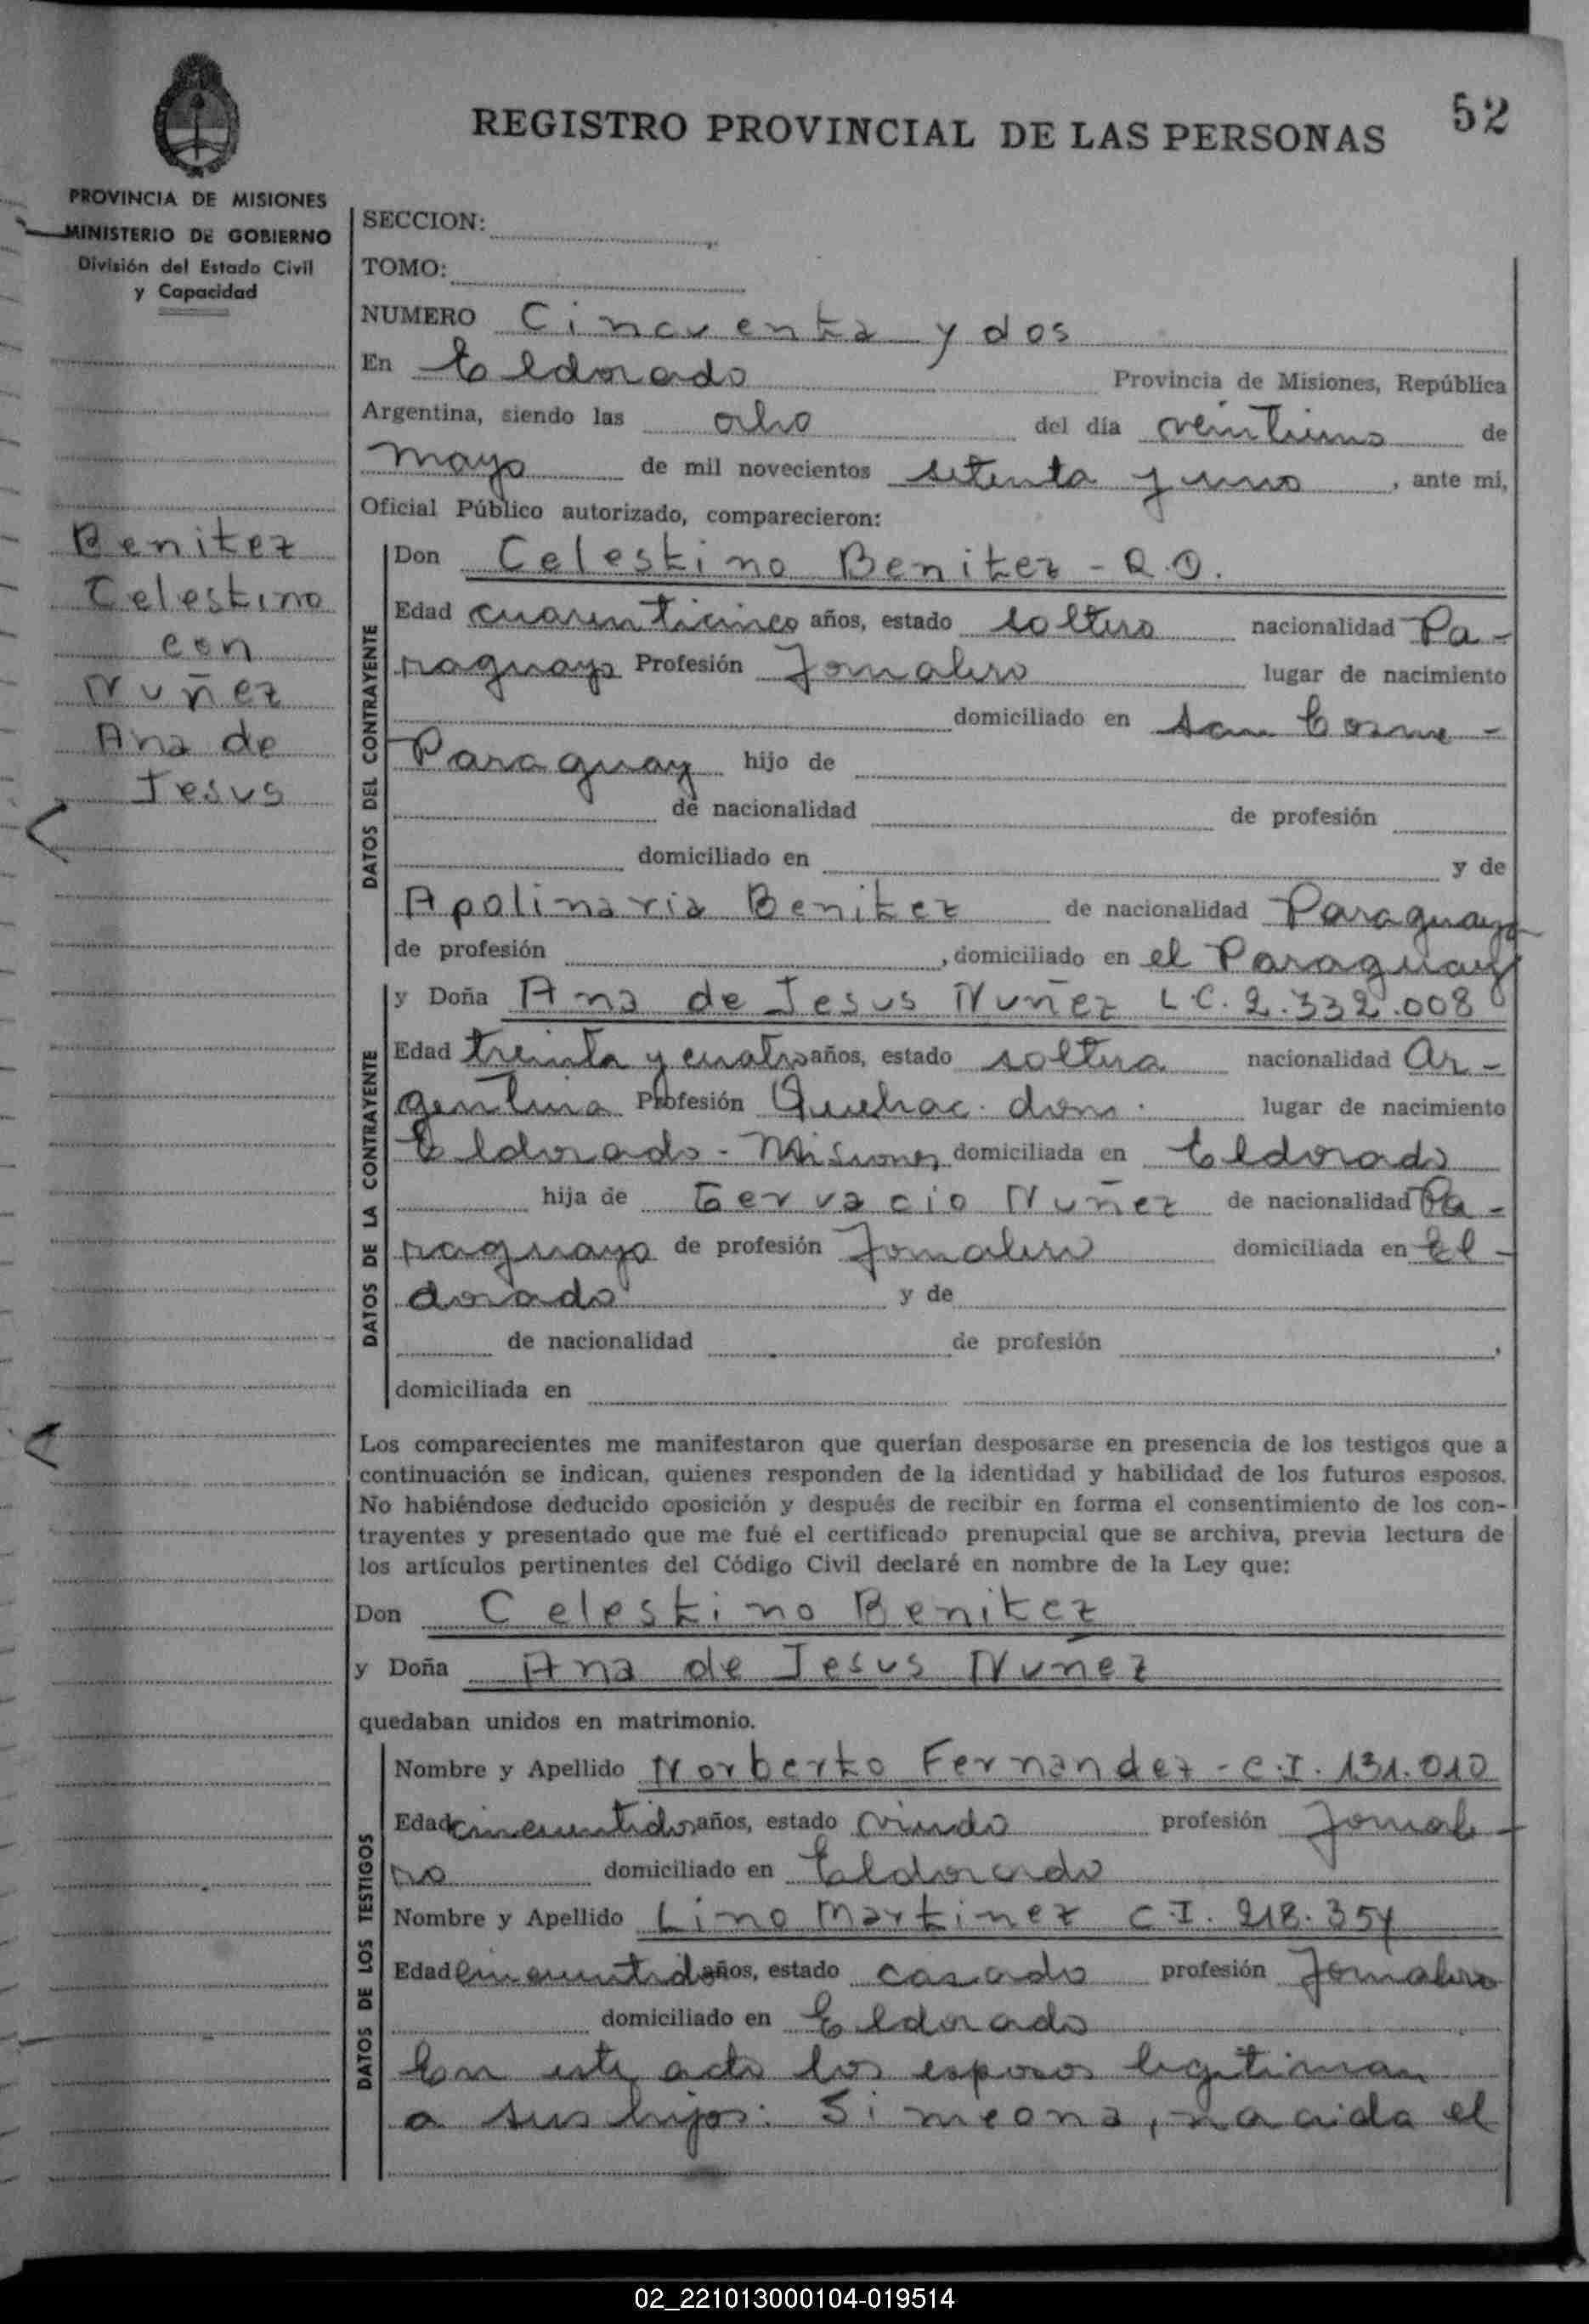 52
REGISTRO PROVINCIAL DE LAS PERSONAS
PROVINCIA DE MISIONES
MINISTERIO DE GOBIERNO
División del Estado Civil
y Capacidad
Benitez
Celestino
con
Nuñez
Ana de
Jesus
SECCION:
TOMO:
NUMERO Cincuenta y dos
En Eldorado Provincia de Misiones, República
Argentina, siendo las ocho del día veintiuno de
mayo de mil novecientos setenta y uno, ante mi,
Oficial Público autorizado, comparecieron:
DATOS DEL CONTRAYENTE
Don Celestino Benitez -
Edad cuarenticinco años, estado soltero nacionalidad Pa-
raguayo Profesión Jornalero lugar de nacimiento
domiciliado en San Cosme -
Paraguay hijo de
de nacionalidad de profesión
domiciliado en y de
Apolinaria Benitez de nacionalidad Paraguaya
de profesión , domiciliado en el Paraguay
DATOS DE LA CONTRAYENTE
y Doña Ana de Jesus Nuñez L.C. 2.332.008
Edad treinta y cuatro años, estado soltera nacionalidad Ar-
gentina Profesión Quehac. dom. lugar de nacimiento
Eldorado - Misiones domiciliada en Eldorado
hija de Gervacio Nuñez de nacionalidad Pa-
raguayo de profesión Jornalero domiciliada en El-
dorado y de
de nacionalidad de profesión ,
domiciliada en
Los comparecientes me manifestaron que querían desposarse en presencia de los testigos que a
continuación se indican, quienes responden de la identidad y habilidad de los futuros esposos.
No habiéndose deducido oposición y después de recibir en forma el consentimiento de los con-
trayentes y presentado que me fué el certificado prenupcial que se archiva, previa lectura de
los artículos pertinentes del Código Civil declaré en nombre de la Ley que:
Don Celestino Benitez
y Doña Ana de Jesus Nuñez
quedaban unidos en matrimonio.
DATOS DE LOS TESTIGOS
Nombre y Apellido Norberto Fernandez - C.I. 131.010
Edad cincuentidos años, estado viudo profesión Jornale-
ro domiciliado en Eldorado
Nombre y Apellido Lino Martinez C.I. 218.354
Edad cincuentidos años, estado casado profesión Jornalero
domiciliado en Eldorado
Con este acto los esposos legitiman
a sus hijos: Simeona, nacida el
02_221013000104-019514